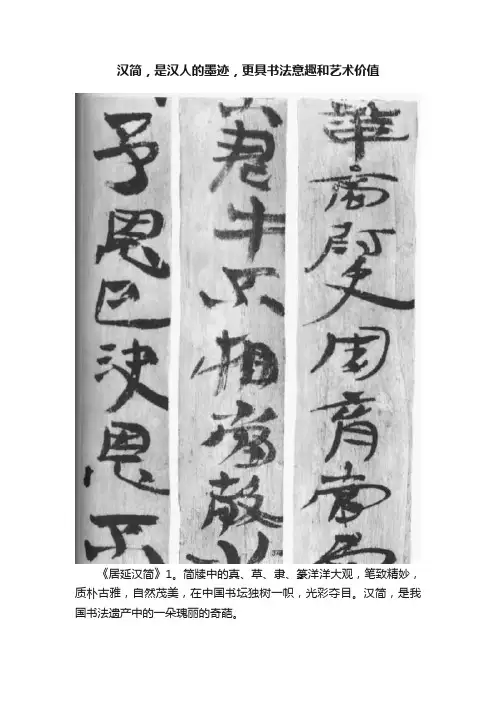 汉简，是汉人的墨迹，更具书法意趣和艺术价值
華商尉史周育當
君牛不相當穀
予恩已決恩不
《居延汉简》1。简牍中的真、草、隶、篆洋洋大观，笔致精妙，
质朴古雅，自然茂美，在中国书坛独树一帜，光彩夺目。汉简，是我
国书法遗产中的一朵瑰丽的奇葩。